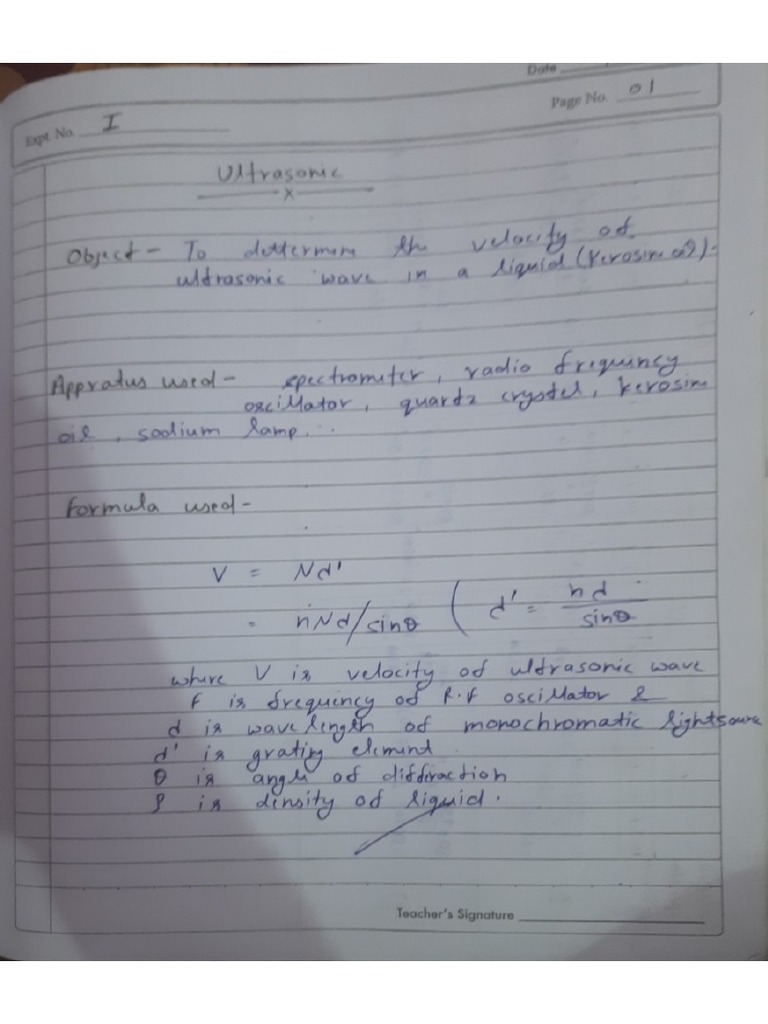 Date
Page No. 01
Expt. No. I
Ultrasonic
x
Object - To dettermine the velocity of
ultrasonic wave in a liquid (Kerosine oil).
Appratus used - spectrometer, radio frequency
oscillator, quartz crystel, kerosine
oil, sodium lamp...
Formula used -
V = Nd'
= nNd/sinθ ( d' = nd/sinθ
where V is velocity of ultrasonic wave
F is frequency of R.F oscillator &
d is wavelength of monochromatic lightsource
d' is grating element
θ is angle of diffraction
ρ is density of liquid.
Teacher's Signature